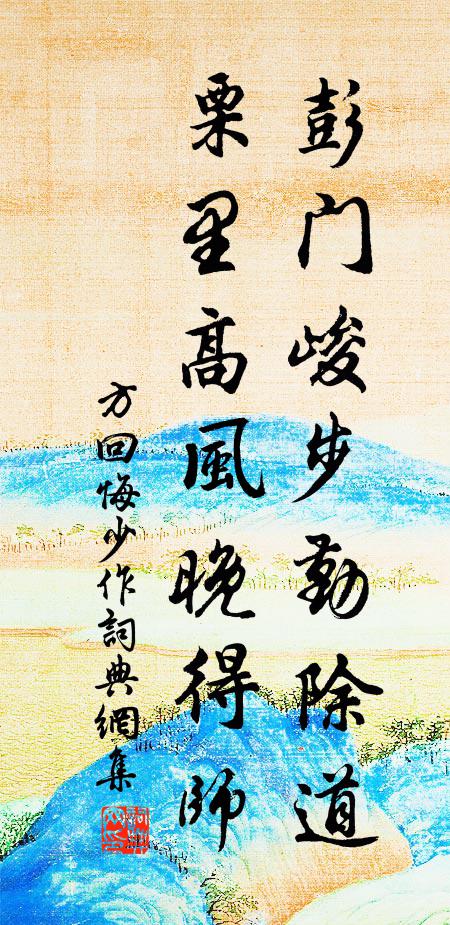 彭門峻步勤除道
栗里高風晚得師
方回悔少作詞典網集